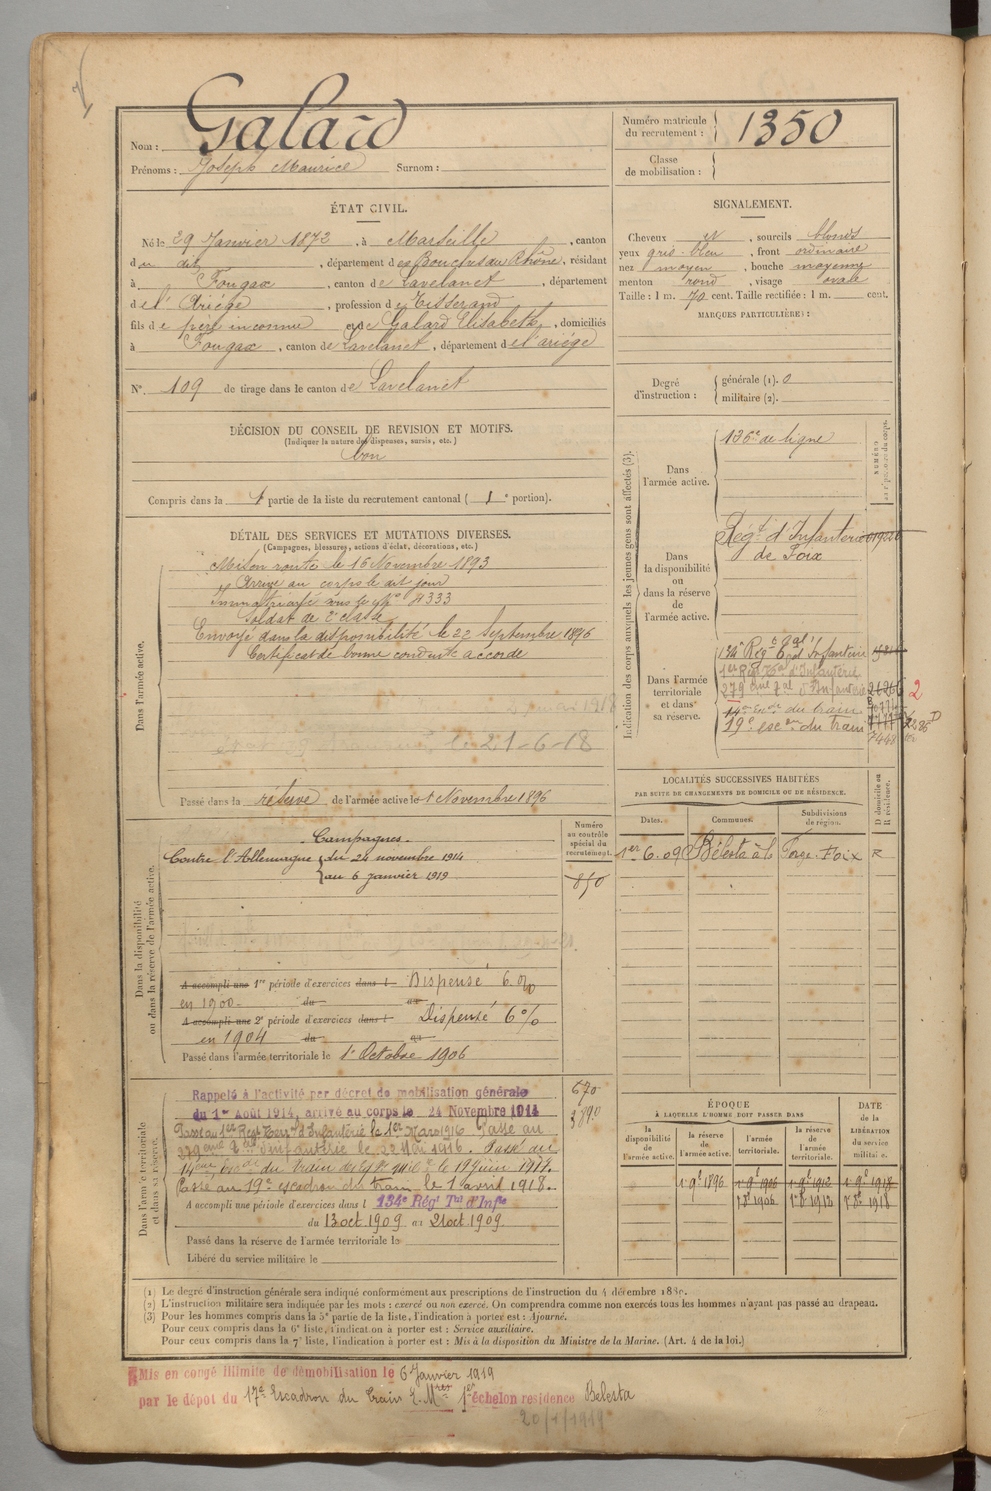 Nom : Galard
Prénoms : Joseph Maurice Surnom :
Numéro matricule du recrutement : 1350
Classe de mobilisation :
ÉTAT CIVIL.
Né le 29 Janvier 1872, à Marseille, canton
du dit, département des Bouches du Rhône, résidant
à Fougax, canton de Lavelanet, département
de l'Ariége, profession de Tisserand
fils de père inconnu et de Galard Elisabeth, domiciliés
à Fougax, canton de Lavelanet, département de l'ariége
N° 109 de tirage dans le canton de Lavelanet
SIGNALEMENT.
Cheveux et, sourcils blonds
yeux gris-bleu, front ordinaire
nez moyen, bouche moyenne
menton rond, visage ovale
Taille : 1 m. 70 cent. Taille rectifiée : 1 m. cent.
MARQUES PARTICULIÈRES :
Degré d'instruction : générale (1). 0
militaire (2).
DÉCISION DU CONSEIL DE REVISION ET MOTIFS.
(Indiquer la nature des dispenses, sursis, etc.)
bon
Compris dans la 1 partie de la liste du recrutement cantonal ( 1e portion).
DÉTAIL DES SERVICES ET MUTATIONS DIVERSES.
(Campagnes, blessures, actions d'éclat, décorations, etc.)
Dans l'armée active.
Mis en route le 16 Novembre 1893
Arrivé au corps le dit jour
Immatriculé sous le N° 4333
Soldat de 2e classe
Envoyé dans la disponibilité le 22 Septembre 1896
Certificat de bonne conduite accordé
le 21-6-18
Passé dans la réserve de l'armée active le 1 Novembre 1896
Indication des corps auxquels les jeunes gens sont affectés (3).
NUMÉRO au répertoire du corps.
Dans l'armée active.
136e de ligne
Dans la disponibilité ou dans la réserve de l'armée active.
Régt d'Infanterie
de Foix
Dans l'armée territoriale et dans sa réserve.
134e Régt tal d'Infanterie
1er Régt tal d'Infanterie
279ème tal d'Infanterie 2
14e escon du train
19e escon du train
LOCALITÉS SUCCESSIVES HABITÉES
PAR SUITE DE CHANGEMENTS DE DOMICILE OU DE RÉSIDENCE.
Dates. Communes. Subdivisions de région. D domicile ou R résidence.
1er 6.09 Bélesta à la Forge Foix R
Dans la disponibilité ou dans la réserve de l'armée active.
Numéro au contrôle spécial du recrutement.
Campagnes.
Contre l'Allemagne du 24 novembre 1914
au 6 janvier 1919
850
A accompli une 1re période d'exercices dans l Dispensé 6.%
en 1900. du au
A accompli une 2e période d'exercices dans l Dispensé 6%
en 1904 du au
Passé dans l'armée territoriale le 1er Octobre 1906
Dans l'armée territoriale et dans sa réserve.
670
3890
Rappelé à l'activité par décret de mobilisation générale
du 1er Août 1914, arrivé au corps le 24 Novembre 1914
Passé au 1er Régt Terr d'Infanterie le 1er Mars 1916. Passé au
279eme tal d'infanterie le 22 Mai 1916. Passé au
le 19 Juin 1917.
Passé au 19e escadron du train le 1 avril 1918.
A accompli une période d'exercices dans l 134e Régt Tal d'Infie
du 13 oct. 1909 au 21 oct. 1909.
Passé dans la réserve de l'armée territoriale le
Libéré du service militaire le
ÉPOQUE
À LAQUELLE L'HOMME DOIT PASSER DANS
DATE de la LIBÉRATION du service militaire.
la disponibilité de l'armée active. la réserve de l'armée active. l'armée territoriale. la réserve de l'armée territoriale.
1 9e 1896 1 9e 1906 1 9e 1912 1 9e 1918
1 8e 1906 1 8e 1912 1 8e 1918
(1) Le degré d'instruction générale sera indiqué conformément aux prescriptions de l'instruction du 4 décembre 1889.
(2) L'instruction militaire sera indiquée par les mots : exercé ou non exercé. On comprendra comme non exercés tous les hommes n'ayant pas passé au drapeau.
(3) Pour les hommes compris dans la 5e partie de la liste, l'indication à porter est : Ajourné.
Pour ceux compris dans la 6e liste, l'indication à porter est : Service auxiliaire.
Pour ceux compris dans la 7e liste, l'indication à porter est : Mis à la disposition du Ministre de la Marine. (Art. 4 de la loi.)
Mis en congé illimité de démobilisation le 6 Janvier 1919
par le dépôt du 17e Escadron du Train 1er échelon résidence Belesta